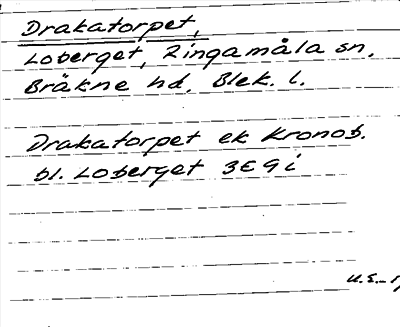 Drakatorpet,
Loberget, Ringamåla sn,
Bräkne hd, Blek. l.
Drakatorpet ek Kronob.
bl. Loberget 3E 9i
U.S.